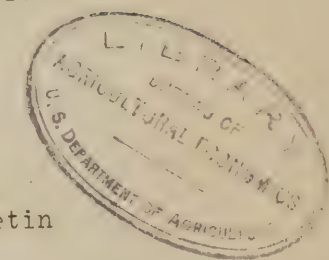 LIBRARY
BUREAU OF
AGRICULTURAL ECONOMICS
U. S. DEPARTMENT OF AGRICULTU
etin